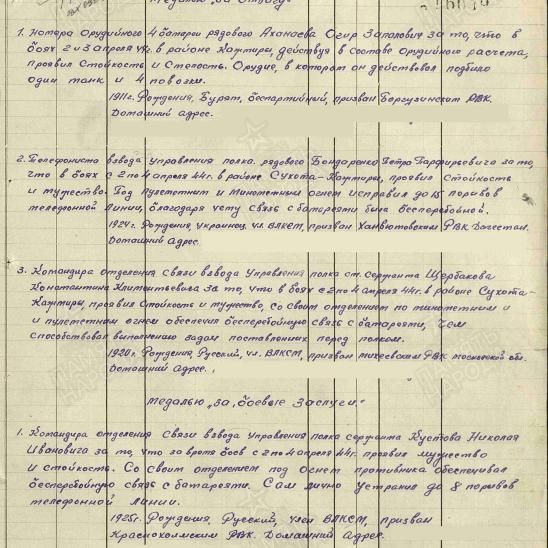 Медалью "За Отвагу"
1. Номера Орудийного 4 батареи рядового Аханаева Огир Запаловиг за то, что в
боях 2 и 3 апреля 44г. в районе Кажтиры, действуя в составе Орудийного расчета,
проявил Стойкость и Смелость. Орудие, в котором он действовал подбило
один танк и 4 повозки.
1911г. Рождения, Бурят, беспартийный, призван Баргузинским РВК.
Домашний адрес.
2. Телефониста взвода управления полка. рядового Бондаренко Петра Парфирьевича за то,
что в боях с 2 по 4 апреля 44г. в районе Сухота-Кажтиры, проявил Стойкость
и мужество. Под Пулеметным и Минометным огнем исправил до 15 порывов
телефонной Линии, благодаря чему Связь с батареями была бесперебойной.
1924г. Рождения, Украинец, чл. ВЛКСМ, призван РВК Дагестан.
Домашний Адрес.
3. Командира отделения Связи взвода Управления полка ст. Сержанта Щербакова
Константина Климентьевича за то, что в боях с 2 по 4 апреля 44г. в районе Сухота-
Кажтиры, проявил Стойкость и мужество, со своим отделением по минометным и
и пулеметным огнем обеспечил бесперебойную связь с батареями, Чем
Способствовал выполнению задач поставленных перед полком.
1920г. Рождения, Русский, чл. ВЛКСМ, призван Михневским РВК московской обл.
Домашний Адрес.
Медалью "За боевые Заслуги."
1. Командира отделения Связи взвода Управления полка сержанта Кустова Николая
Ивановича за то, что за время боев с 2 по 4 апреля 44г. проявил мужество
и стойкость. Со своим отделением под Огнем противника обеспечивал
бесперебойную связь с батареями. Сам лично Устранил до 8 порывов
телефонной Линии.
1925г. Рождения, Русский, член ВЛКСМ, призван
Краснохолмским РВК. Домашний Адрес.